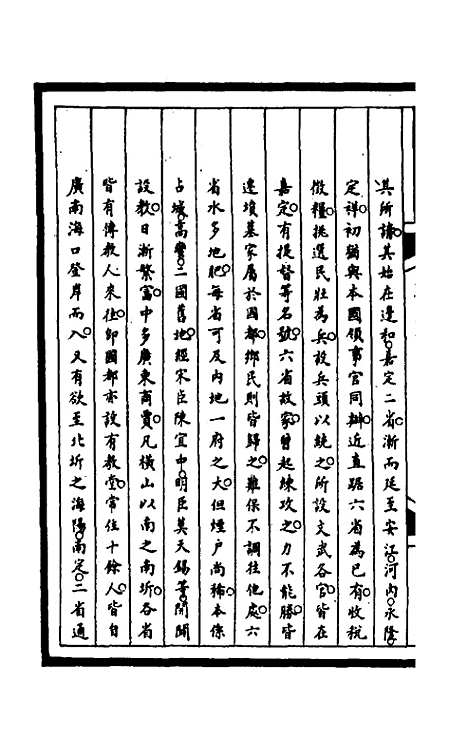 其所譲其始在邊和嘉定二省漸而延至安江河內永隆
定祥初猶與本國領事官同辦近直踞六省為已有收稅
徵糧挑選民壯為兵設兵頭以統之所設文武各官皆在
嘉定有提督等名號六省故家曾起練攻之力不能勝皆
遷墳墓家屬於國都鄉民則皆歸之難保不調往他處六
省水多地肥每省可及內地一府之大但煙戶尚稀本係
占城高蠻二國舊地經宋臣陳宜中明臣莫天錫等開闢
設教日漸繁富中多廣東商賈凡橫山以南之南圻各省
皆有傳教人來往卽國都亦設有教堂常住十餘人皆自
廣南海口登岸而入又有欲至北圻之海陽南定二省通